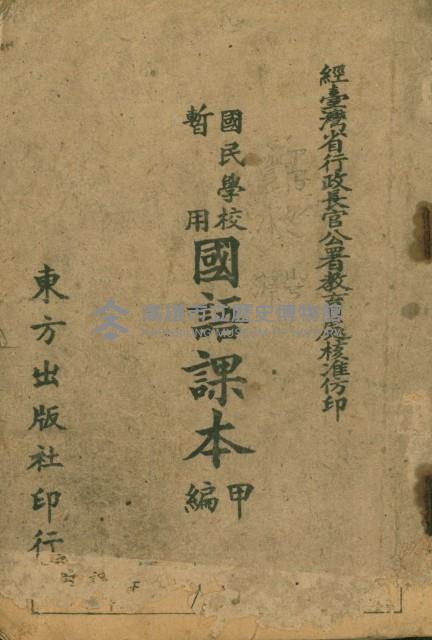 經臺灣省行政長官公署教育處核准仿印
國民學校
暫用
國語課本
甲編
東方出版社印行
高雄市立歷史博物館
KAOHSIUNG MUSEUM OF HISTORY